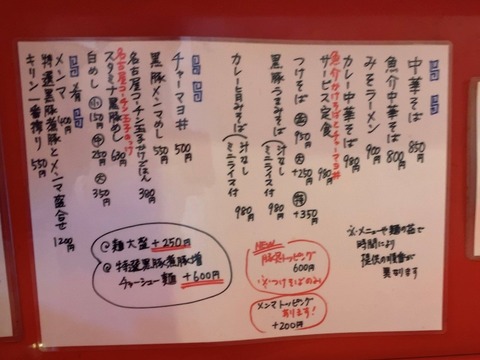 中華そば 850円
魚介中華そば 800円
みそラーメン 900円
カレー中華そば 980円
魚介かけそばとチャーマヨ丼
サービス定食 980円
つけそば 並 950円 大 +250円 特 +350円
黒豚うまみそば (汁なし ミニライス付 980円
カレー旨みそば (汁なし ミニライス付 980円
※メニューや麺の茹で
時間により
提供の順番が
異なります
チャーマヨ丼 500円
黒豚メンマめし 550円
名古屋コーチン玉子かけごはん 380円
名古屋コーチン玉子のっけ
スタミナ黒豚めし 630円
白めし 小 150円 中 250円 大 350円
肴
メンマ 400円
特選黒豚煮豚とメンマ盛合せ 1200円
キリン一番搾り 550円
@麺大盛 +250円
@特選黒豚煮豚増
チャーシュー麺 +600円
NEW
トッピング
600円
※つけそばのみ
メンマトッピング
あります!
+200円